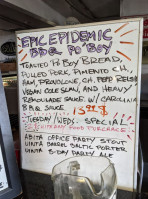 EPIC EPIDEMIC
BBQ PO'BOY
TOASTED PO'BOY BREAD,
PULLED PORK, PIMENTO CH.
HAM, PROVOLONE, CH, PEPP RELISH
VEGAN COLE SLAW, AND HEAVY
REMOULADE SAUCE W/ CAROLINA
BBQ SAUCE 13
TUESDAY/WEDS. SPECIAL
PURCHASE
ABITA OFFICE PARTY STOUT
UINTA BARREL BALTIC PORTER
UINTA 5-DAY PARTY ALE